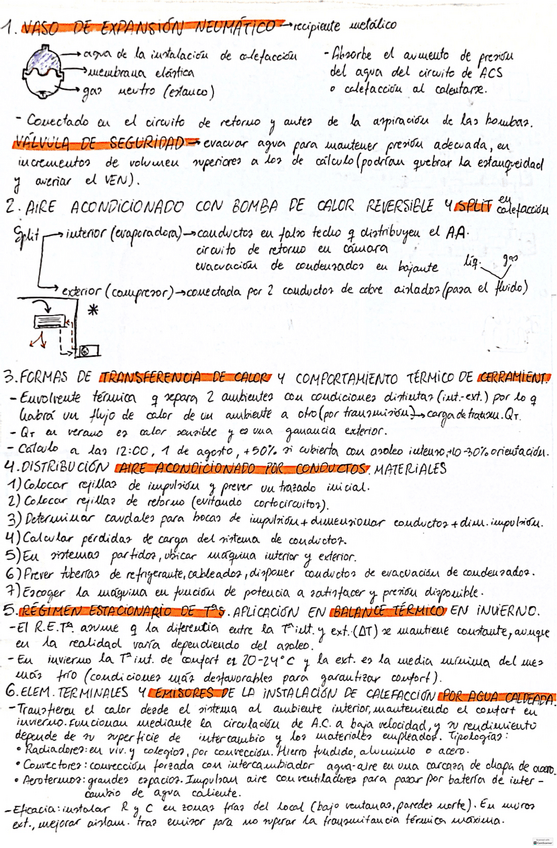 1. VASO DE EXPANSIÓN NEUMÁTICO → recipiente metálico
→ agua de la instalación de calefacción
→ membrana elástica
→ gas neutro (estanco)
- Absorbe el aumento de presión
del agua del circuito de ACS
o calefacción al calentarse.
- Conectado en el circuito de retorno y antes de la aspiración de las bombas.
VÁLVULA DE SEGURIDAD → evacuar agua para mantener presión adecuada, en
incrementos de volumen superiores a los de cálculo (podrían quebrar la estanqueidad
y averiar el VEN).
2. AIRE ACONDICIONADO CON BOMBA DE CALOR REVERSIBLE Y SPLIT en calefacción
Split → interior (evaporadora) → conductos en falso techo q distribuyen el AA.
circuito de retorno en cámara
evacuación de condensados en bajante
liq. gas
→ exterior (compresor) → conectada por 2 conductos de cobre aislados (pasa el fluido)
*
3. FORMAS DE TRANSFERENCIA DE CALOR Y COMPORTAMIENTO TÉRMICO DE CERRAMIENT.
- Envolvente térmica q separa 2 ambientes con condiciones distintas (int.-ext.) por lo q
habrá un flujo de calor de un ambiente a otro (por transmisión) → carga de transm. QT.
- QT en verano es calor sensible y es una ganancia exterior.
- Cálculo a las 12:00, 1 de agosto, +50% si cubierta con asoleo intenso, 10-30% orientación.
4. DISTRIBUCIÓN AIRE ACONDICIONADO POR CONDUCTOS, MATERIALES
1) Colocar rejillas de impulsión y prever un trazado inicial.
2) Colocar rejillas de retorno (evitando cortocircuitos).
3) Determinar caudales para bocas de impulsión + dimensionar conductos + dim. impulsión.
4) Calcular pérdidas de carga del sistema de conductos.
5) En sistemas partidos, ubicar máquina interior y exterior.
6) Prever tuberías de refrigerante, cableados, disponer conductos de evacuación de condensados.
7) Escoger la máquina en función de potencia a satisfacer y presión disponible.
5. RÉGIMEN ESTACIONARIO DE Tªs. APLICACIÓN EN BALANCE TÉRMICO EN INVIERNO.
- El R.E.Tª asume q la diferencia entre la Tª int. y ext. (ΔT) se mantiene constante, aunque
en la realidad varía dependiendo del asoleo.
- En invierno la Tª int. de confort es 20-24°C y la ext. es la media mínima del mes
más frío (condiciones más desfavorables para garantizar confort).
6. ELEM. TERMINALES Y EMISORES DE LA INSTALACIÓN DE CALEFACCIÓN POR AGUA CALTEADA.
- Transfieren el calor desde el sistema al ambiente interior, manteniendo el confort en
invierno. Funcionan mediante la circulación de A.C. a baja velocidad, y su rendimiento
depende de su superficie de intercambio y los materiales empleados. Tipologías:
• Radiadores: en viv. y colegios, por convección. Hierro fundido, aluminio o acero.
• Convectores: convección forzada con intercambiador agua-aire en una carcasa de chapa de acero.
• Aerotermos: grandes espacios. Impulsan aire con ventiladores para pasar por batería de inter-
cambio de agua caliente.
- Eficacia: instalar R y C en zonas frías del local (bajo ventanas, paredes norte). En muros
ext., mejorar aislam. tras emisor para no superar la transmitancia térmica máxima.